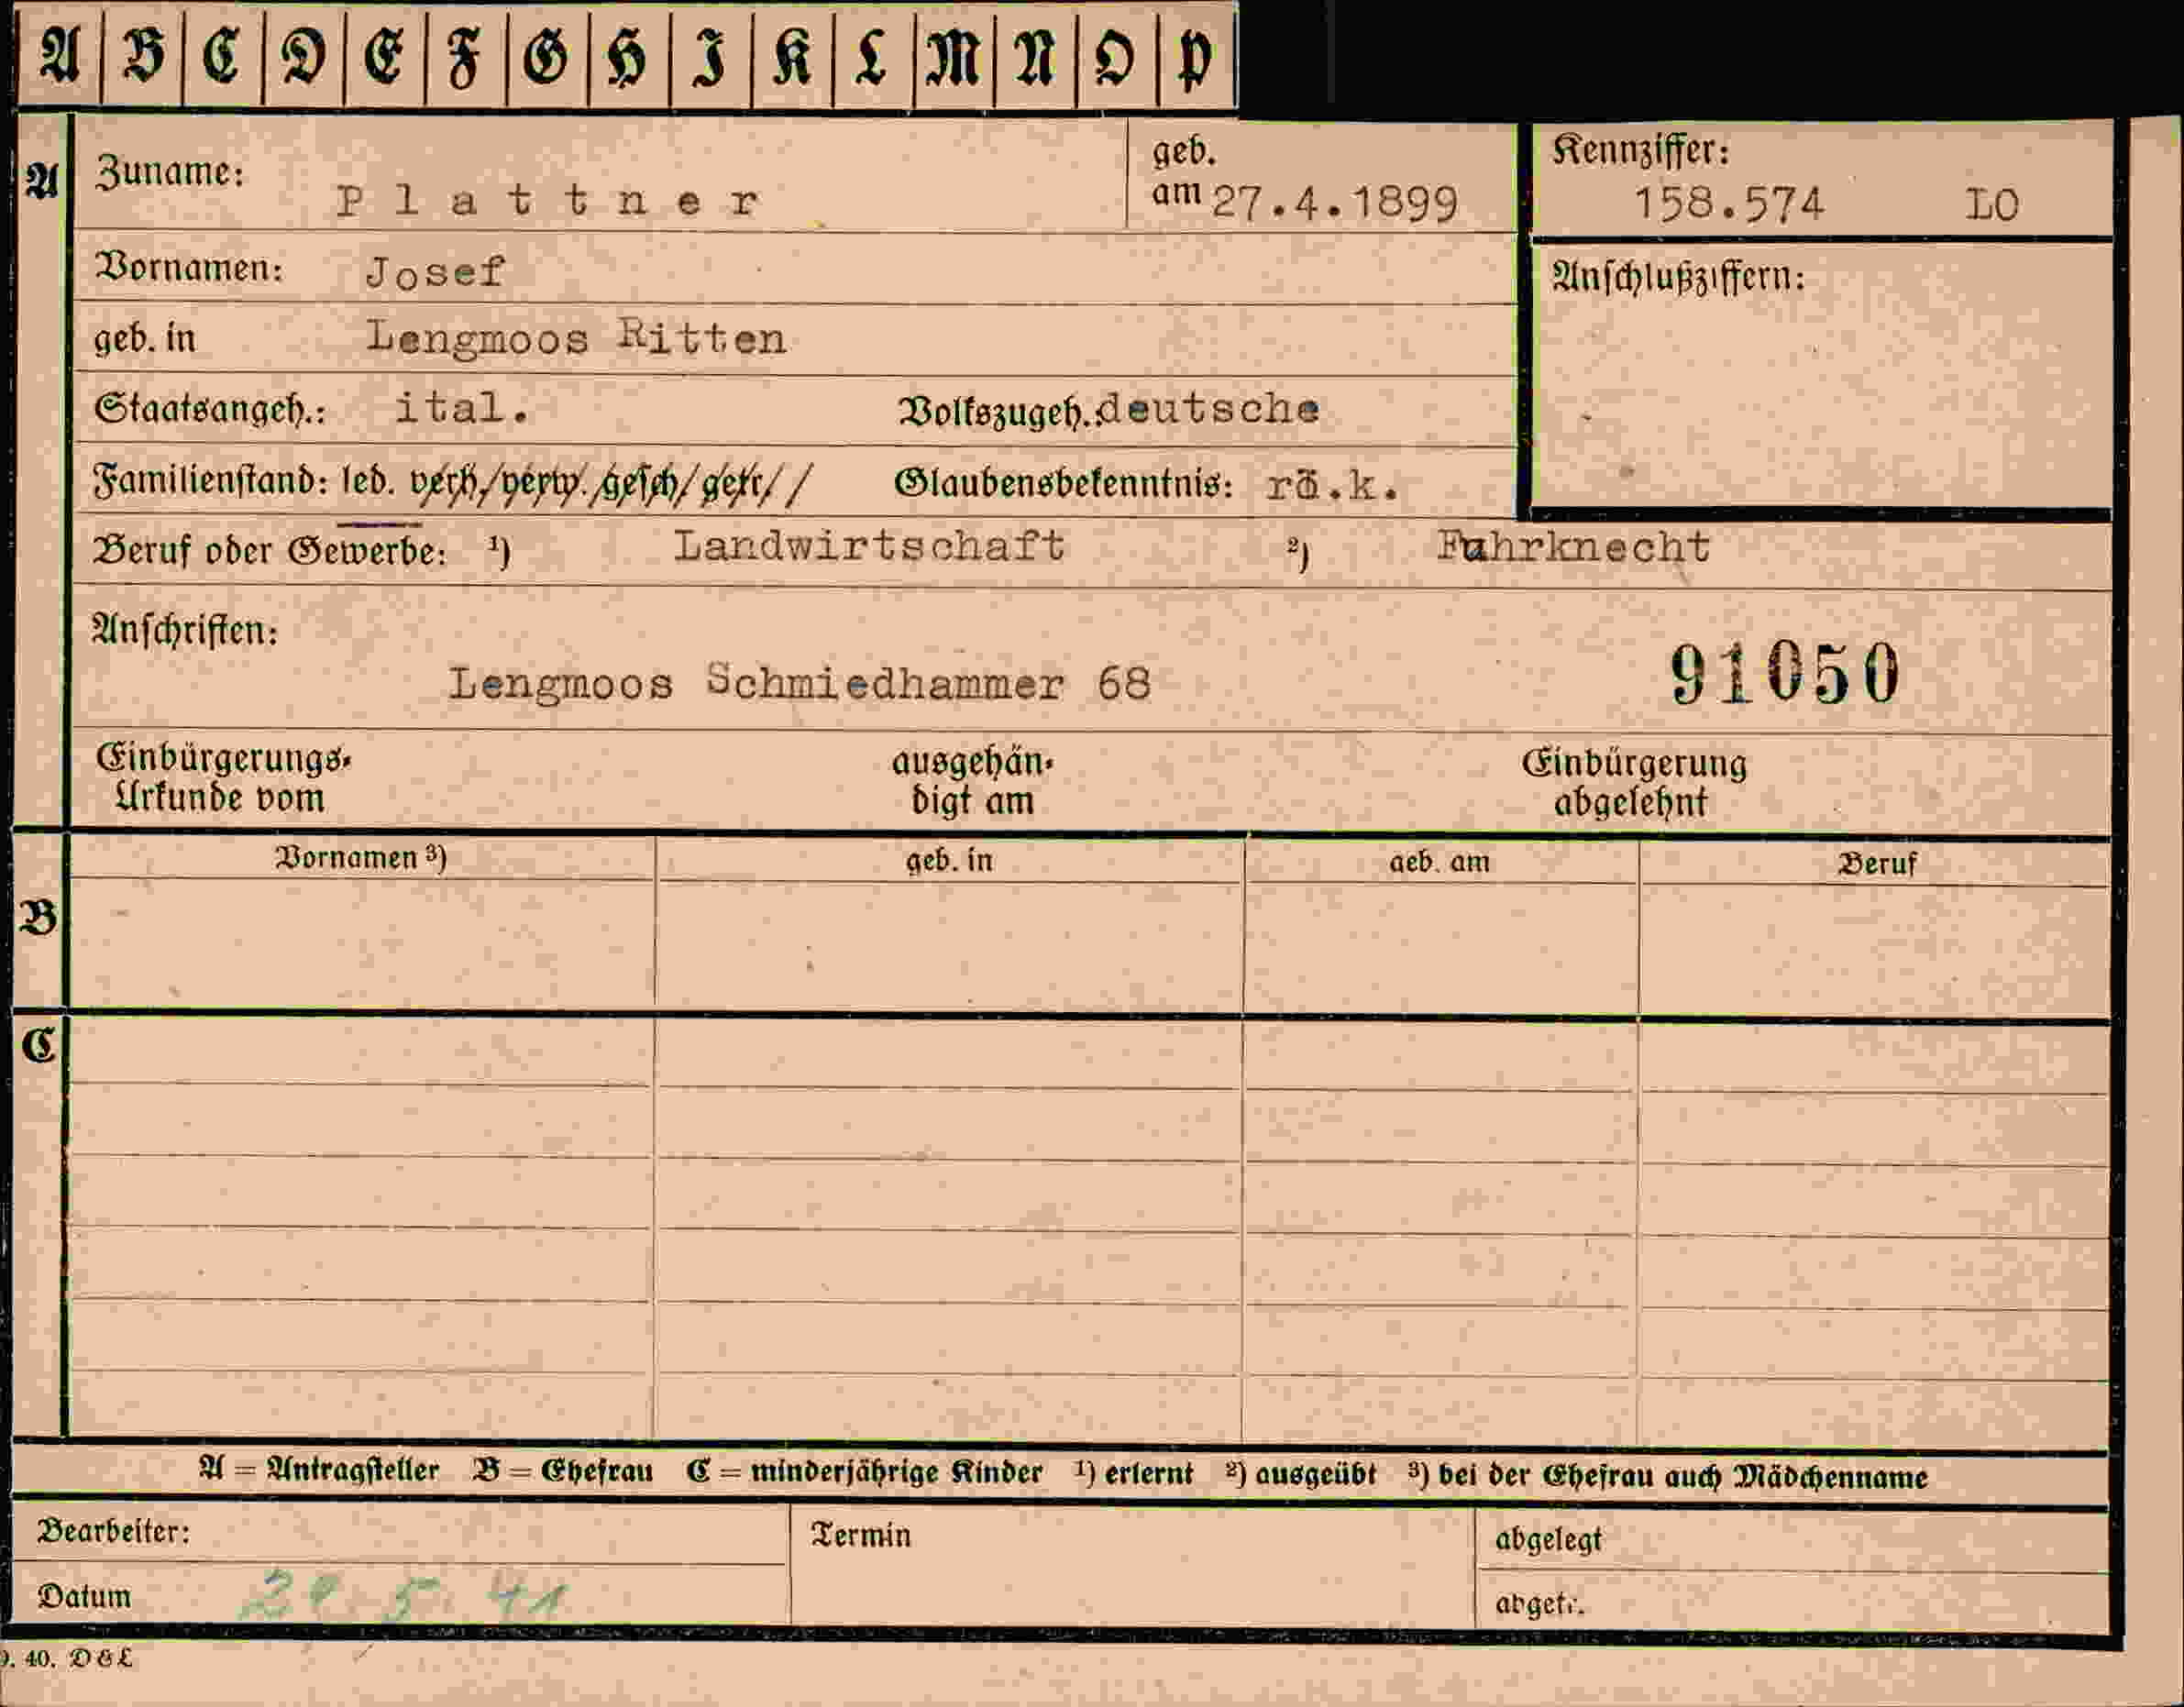 A B C D E F G H I K L M N O P
A Zuname: Plattner geb. am 27.4.1899 Kennziffer: 158.574 LO
Vornamen: Josef Anschlußziffern:
geb. in Lengmoos Ritten
Staatsangeh.: ital. Volkszugeh.: deutsche
Familienstand: led. verh./verw./gesch/getr// Glaubensbekenntnis: rö.k.
Beruf oder Gewerbe: ¹) Landwirtschaft ²) Fuhrknecht
Anschriften:
Lengmoos Schmiedhammer 68 91050
Einbürgerungs- ausgehän- Einbürgerung
Urkunde vom digt am abgelehnt
Vornamen ³) geb. in geb. am Beruf
B
C
A = Antragsteller B = Ehefrau C = minderjährige Kinder ¹) erlernt ²) ausgeübt ³) bei der Ehefrau auch Mädchenname
Bearbeiter: Termin abgelegt
Datum 5. 41 abgetr.
40. D & L